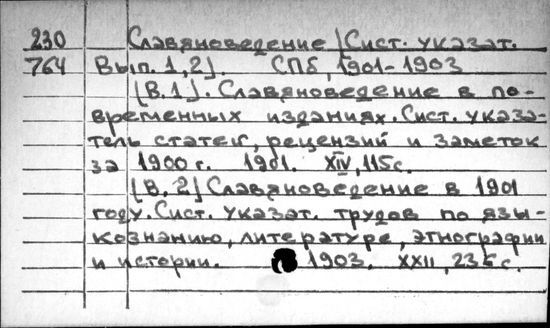 230 Славяноведение [Сист. указат.
764 Вып. 1,2]. СПб, 1901-1903
[В.1]. Славяноведение в по-
временных изданиях. Сист. указа-
тель статей, рецензий и заметок
за 1900 г. 1901. XIV, 115 с.
[В. 2] Славяноведение в 1901
году. Сист. указат. трудов по язы-
кознанию, литературе, этнографии
и истории. 1903. XXII, 235 с.